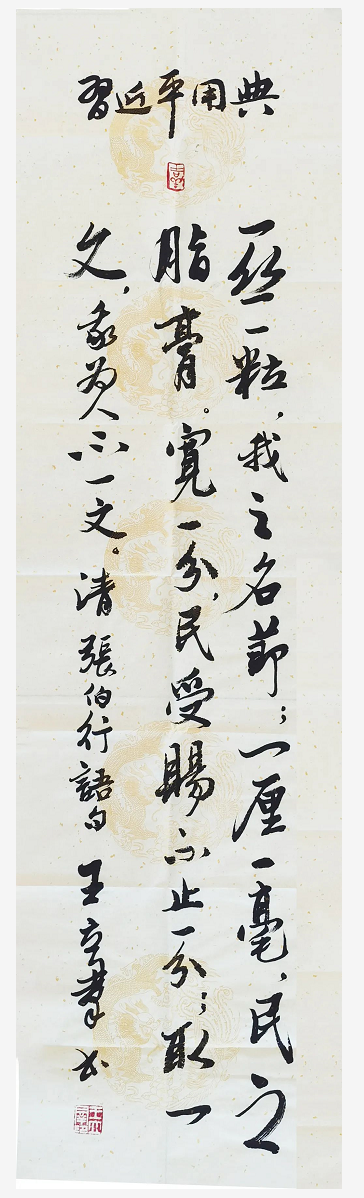 習近平用典
一丝一粒，我之名節；一厘一毫，民之
脂膏。寬一分，民受賜不止一分；取一
文，我为人不一文。清張伯行語句 王 书